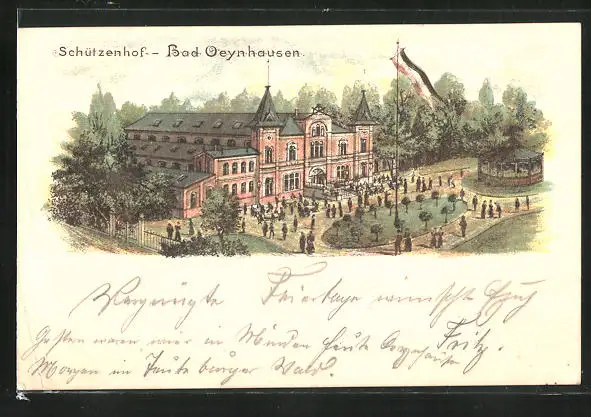 Schützenhof - Bad Oeynhausen.
Vergnügte Feiertage wünscht Euch
Fritz.
Gestern waren wir in Minden heute Oeynhausen
Morgen im Teuteburger Wald.